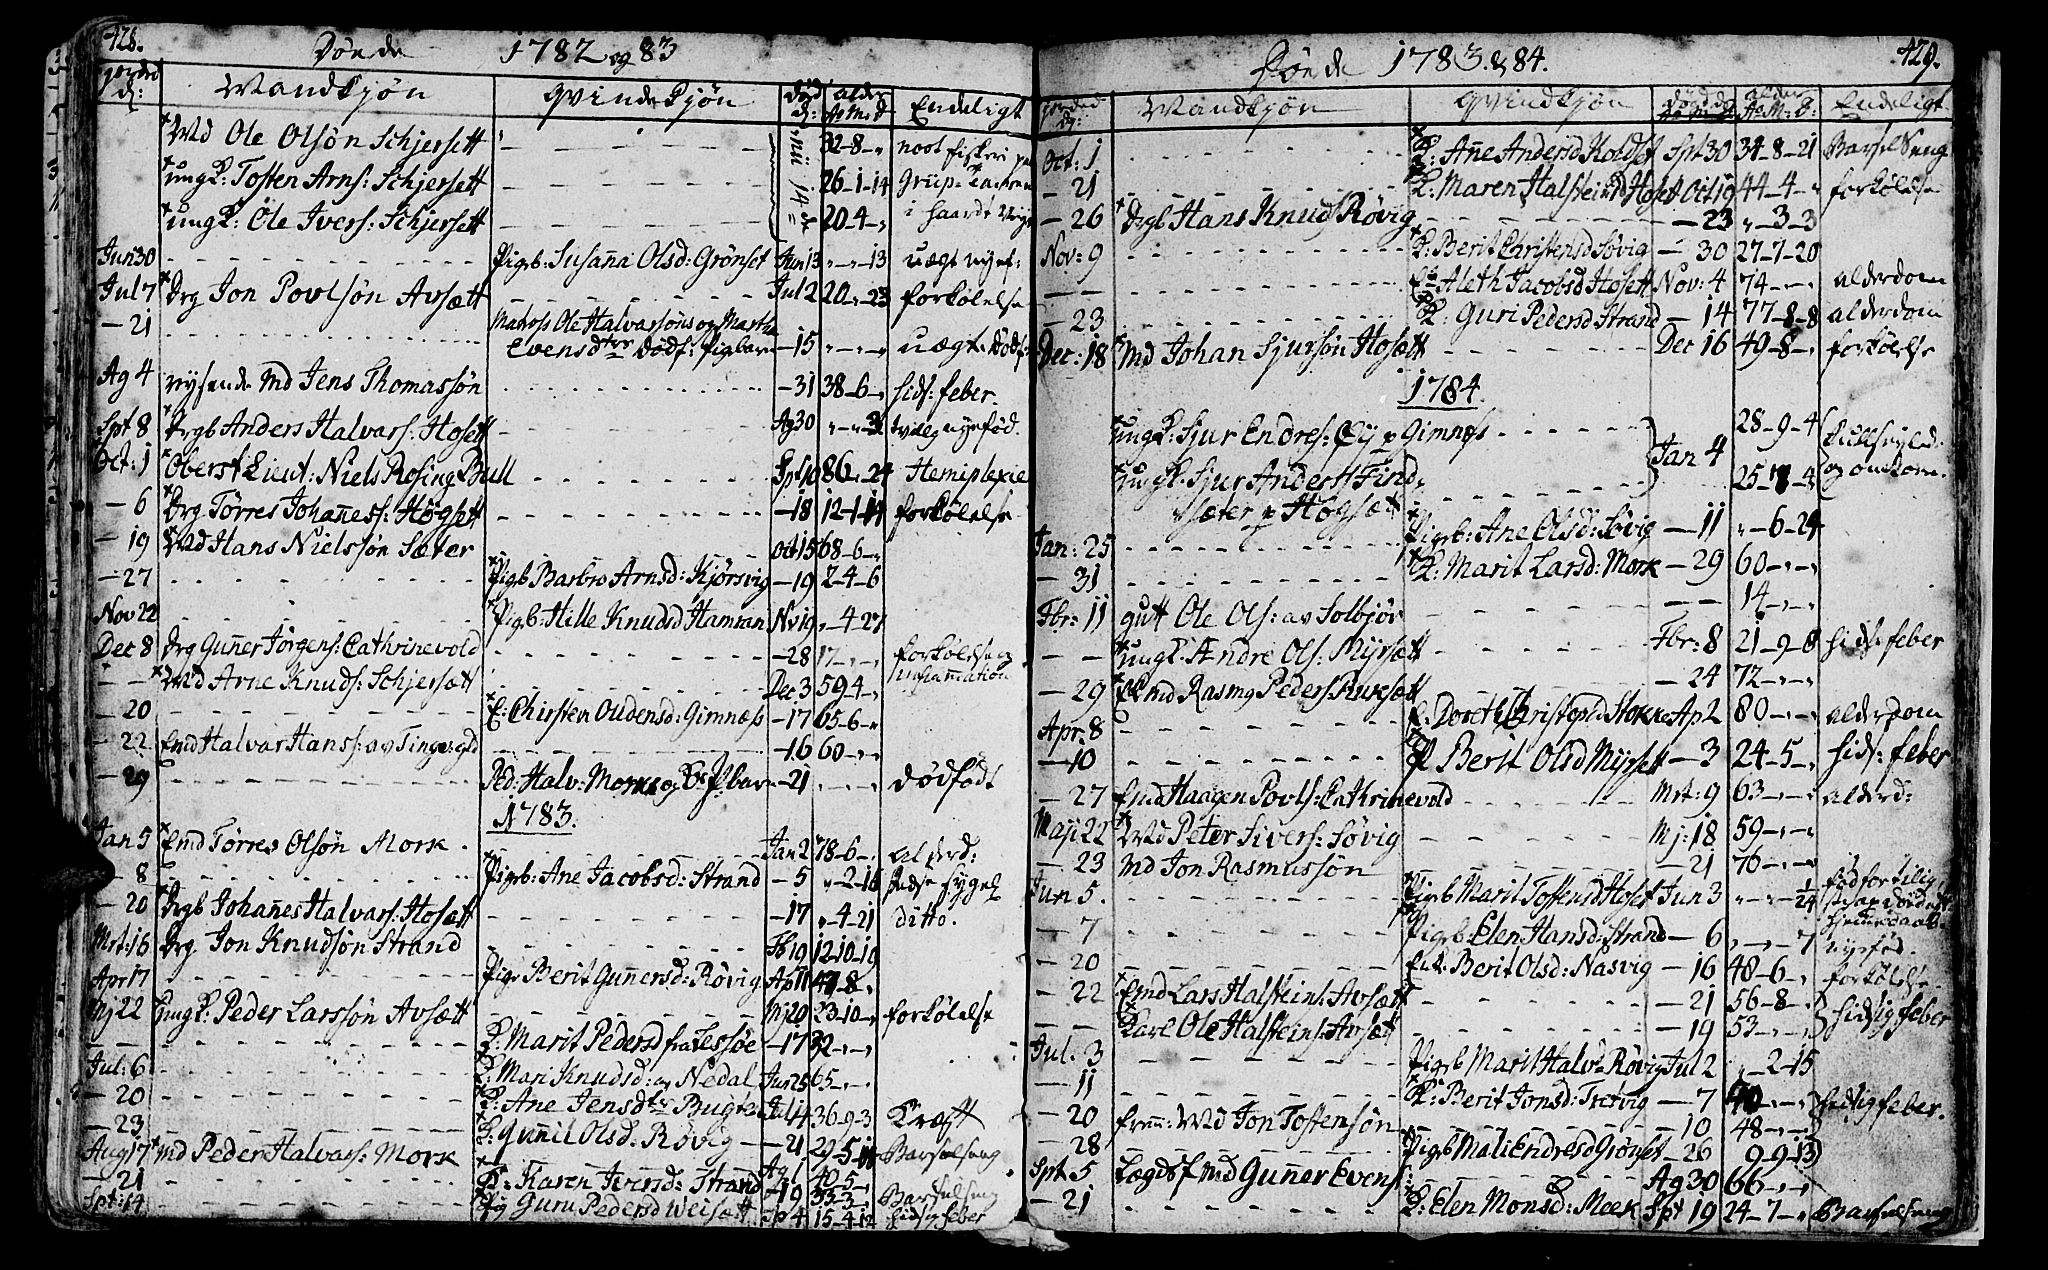 428.
Döede 1782 og 83
Mandkjön Qvindekjön död alder Endeligt
D: Aa M D
*Md Ole Olsön Schjersett 32-8-"
*ungk: Tosten Arns: Schjersett 26-1-14
*ungk: Ole Ivers: Schjersett 20-4-"
Jun 30 Pigb: Susana Olsd: Grönset Jun 13 "-"-13 uægt nyef:
Jul 7 *Drg Jon Povlsön Avsætt Jul 2 20-"-23 forkölelse
-21 Matros Ole Halvarsöns og Martha
Evensdtrs Dödf: Pigbarn -15 "-"-" uægt Dödf
Ag 4 rejsende Md Jens Thomassön -31 38-6-" hids: feber.
Spt 8 *Drgb Anders Halvars: Hosett Ag 30
Oct: 1 *Oberst Lieut: Niels Rosing Bull Spt 10 86-"-24 Hemiplexie
-6 *Drg Törres Johañess: Högsett -18 12-1-14 forkölelse
-19 *Md Hans Nielssön Sæter Oct 15 68-6-"
-27 *Pigb Barbro Arnsd: Kjörsvig -19 2-4-6
Nov 22 *Pigb: Hille Knudsd Hamran Nv 19 "-4-27
Dec 8 Drg Guñer Jörgens: Cathrinevold -28 17-"-" forkölelse og
-- *Md Arne Knuds: Schjersætt Dec 3 59-4-" Inflamation
-20 *E: Chirsten Oudensd: Gimnæs -17 65-6-"
-22 Emd Halvar Hans: av Tingv: gld -16 60-"-"
-29 Ped: Halv: Mork og -21 "-"-" Dödfödt
1783.
Jan 5 *Emd Törres Olsön Mork. Jan 2 78-6-" alderd:
-8 *Pigb: Ane Jacobsd: Strand -5 "-2-16
-20 *Drgb Johañes Halvars: Hosætt -17 "-4-21 ditto.
Mrt: 16 Drg Jon Knudsön Strand Fb 19 12-10-19
Apr 17 Pige Berit Guñersd: Rövig Ap 11 47-8-"
Mj 22 *ungk: Peder Larssön Avsætt Mj 20 23-10-" forkölelse
-- K: Marit Pedersd fra Lessöe -17 32-"-"
Jul: 6 K: Mari Knudsd: av Nedal Jun 25 65-"-"
-20 *K: Ane Jensdtr Bugten Jul 14 36-9-3 Kræft
-23 K: Guñil Olsd: Rövig -21 29-5-11 Barselseng
Aug 17 *Md Peder Halvars: Mork
-21 *K: Karen Iversd: Strand -19 33-3-" Barselseng
Spt: 14 *Pig Guru Pedersd Weisætt Sp 4 15-4-12 hidsig feber
429.
Döede 1783. & 84.
Mandkjön Qvindkjön död alder Endeligt
Oct: 1 *K: Añe Andersd Koldset Spt 30 34-8-21 Barselseng
-21 *K: Maren Halsteinsd Hoset Oct 19 44-4-" forkölelse
-26 *Drgb Hans Knuds Rövig -23 "-3-3
Nov: 9 *K: Berit Christensd Sövig -30 27-7-20
-- Aleth Jacobsd Hosett Nov: 4 74-"-" alderdom
-23 *K: Guri Pedersd Strand -14 77-8-8 alderdom
Dec: 18 *Md Johan Sjursön Hosætt Dec 16 49-8-" forkölelse
1784.
*ungk: Sjur Endres: Eÿ p Gimnes 28-9-4
Jan 4
*ungk: Sjur Anders: Find- 25-7-3 og omkom.
sæter p Högsæt
Jan: 25 *Pigb: Ane Olsd: Sövig -11 "-6-24
-31 *K: Marit Larsd: Mork -29 60-"-"
Fbr: 11 gutt Ole Ols: av Solbjör -- 14-"-"
-- *ungk: Andre Ols: Myrsætt Fbr: 8 21-9-8 hids: feber
-29 *Emd Rasmg Peders: -24 72-"-"
Apr: 8 E: Doreth Christophd Stokke Ap 2 80-"-" alderdom
-10 *P Berit Olsd Myrsett -3 24-5-" hids: feber
-27 Emd Haagen Povls: Cathrinevold Mrt: 9 63-"-" alderd:
Maji 22 *Md Peter Sivers: Sövig Mj: 18 59-"-"
-23 Md Jon Rasmussön -21 76-"-"
Jun 5. *Pigb Marit Tostensd Hoset Jun 3 "-"-1/24 född for tilig
-7 Pigb: Elen Hansd: Strand -6 "-"-7 nyefød.
-20 Enk: Berit Olsd: Nasvig -16 48-6-" forkölelse.
-22 *Emd Lars Halsteins: Avsætt -21 56-8-" hidsig feber
-- Karl Ole Halsteins: Avsætt -19 53-"-"
Jul: 3 Pigb Marit Halvs: Rövig Jul 2 "-2-15
-11 *K: Berit Jonsd: Trotvig -7 40-"-" hidsig feber.
-20 frem: Md Jon Tostensön -10 48-"-"
-28 Pigb Mali Endresd Grönset -26 9-9-13
Spt: 5 Lægdsf Md Guñer Evens: Ag 30 66-"-"
-21 K: Elen Monsd: Meek Spt 19 24-7-" Barselseng